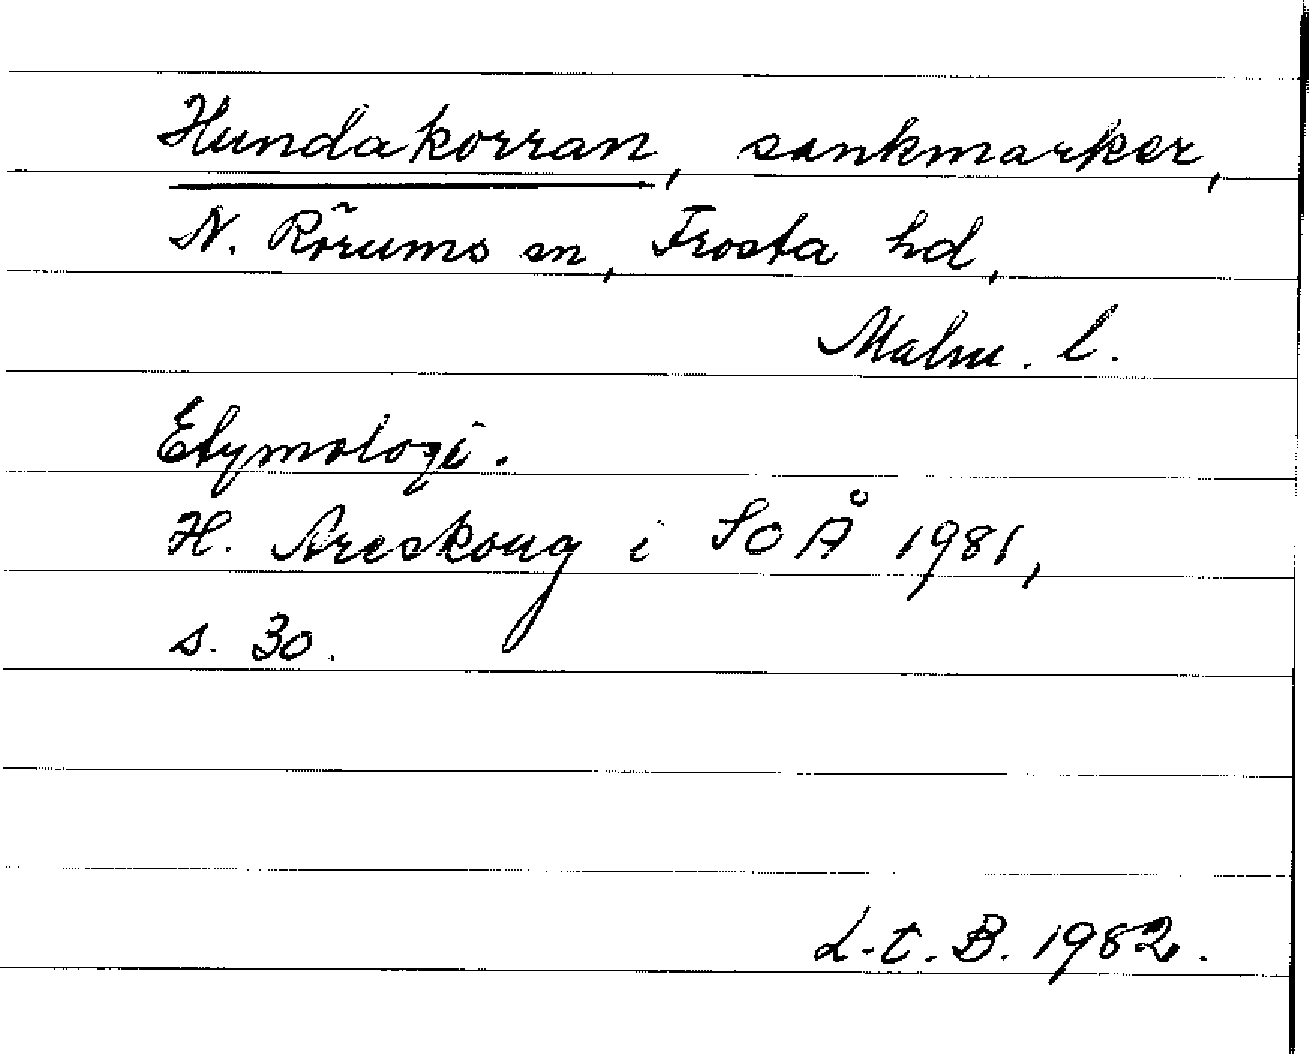 Hundakorran, sankmarker,
N. Rörums sn, Frosta hd,
Malm. l.
Etymologi.
H. Areskoug i SOÅ 1981,
s. 30.
L.t.B. 1982.